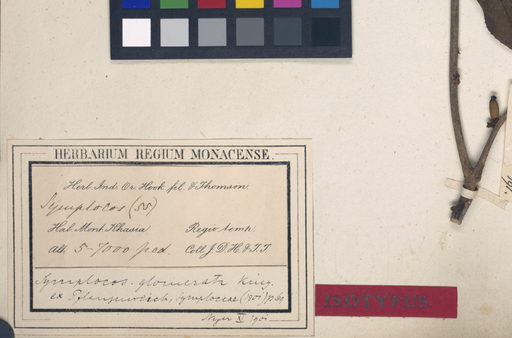 HERBARIUM REGIUM MONACENSE.
Herb. Ind. Or. Hook. fil. & Thomson.
Symplocos (55)
Hab. Mont. Khasia Regio temp.
alt. 5-7000 ped. Coll. J. D. H. & T. T.
Symplocos glomerata King.
ex Pflanzenreich, Symplocac. (1901) p.
1901
ISOTYPUS.